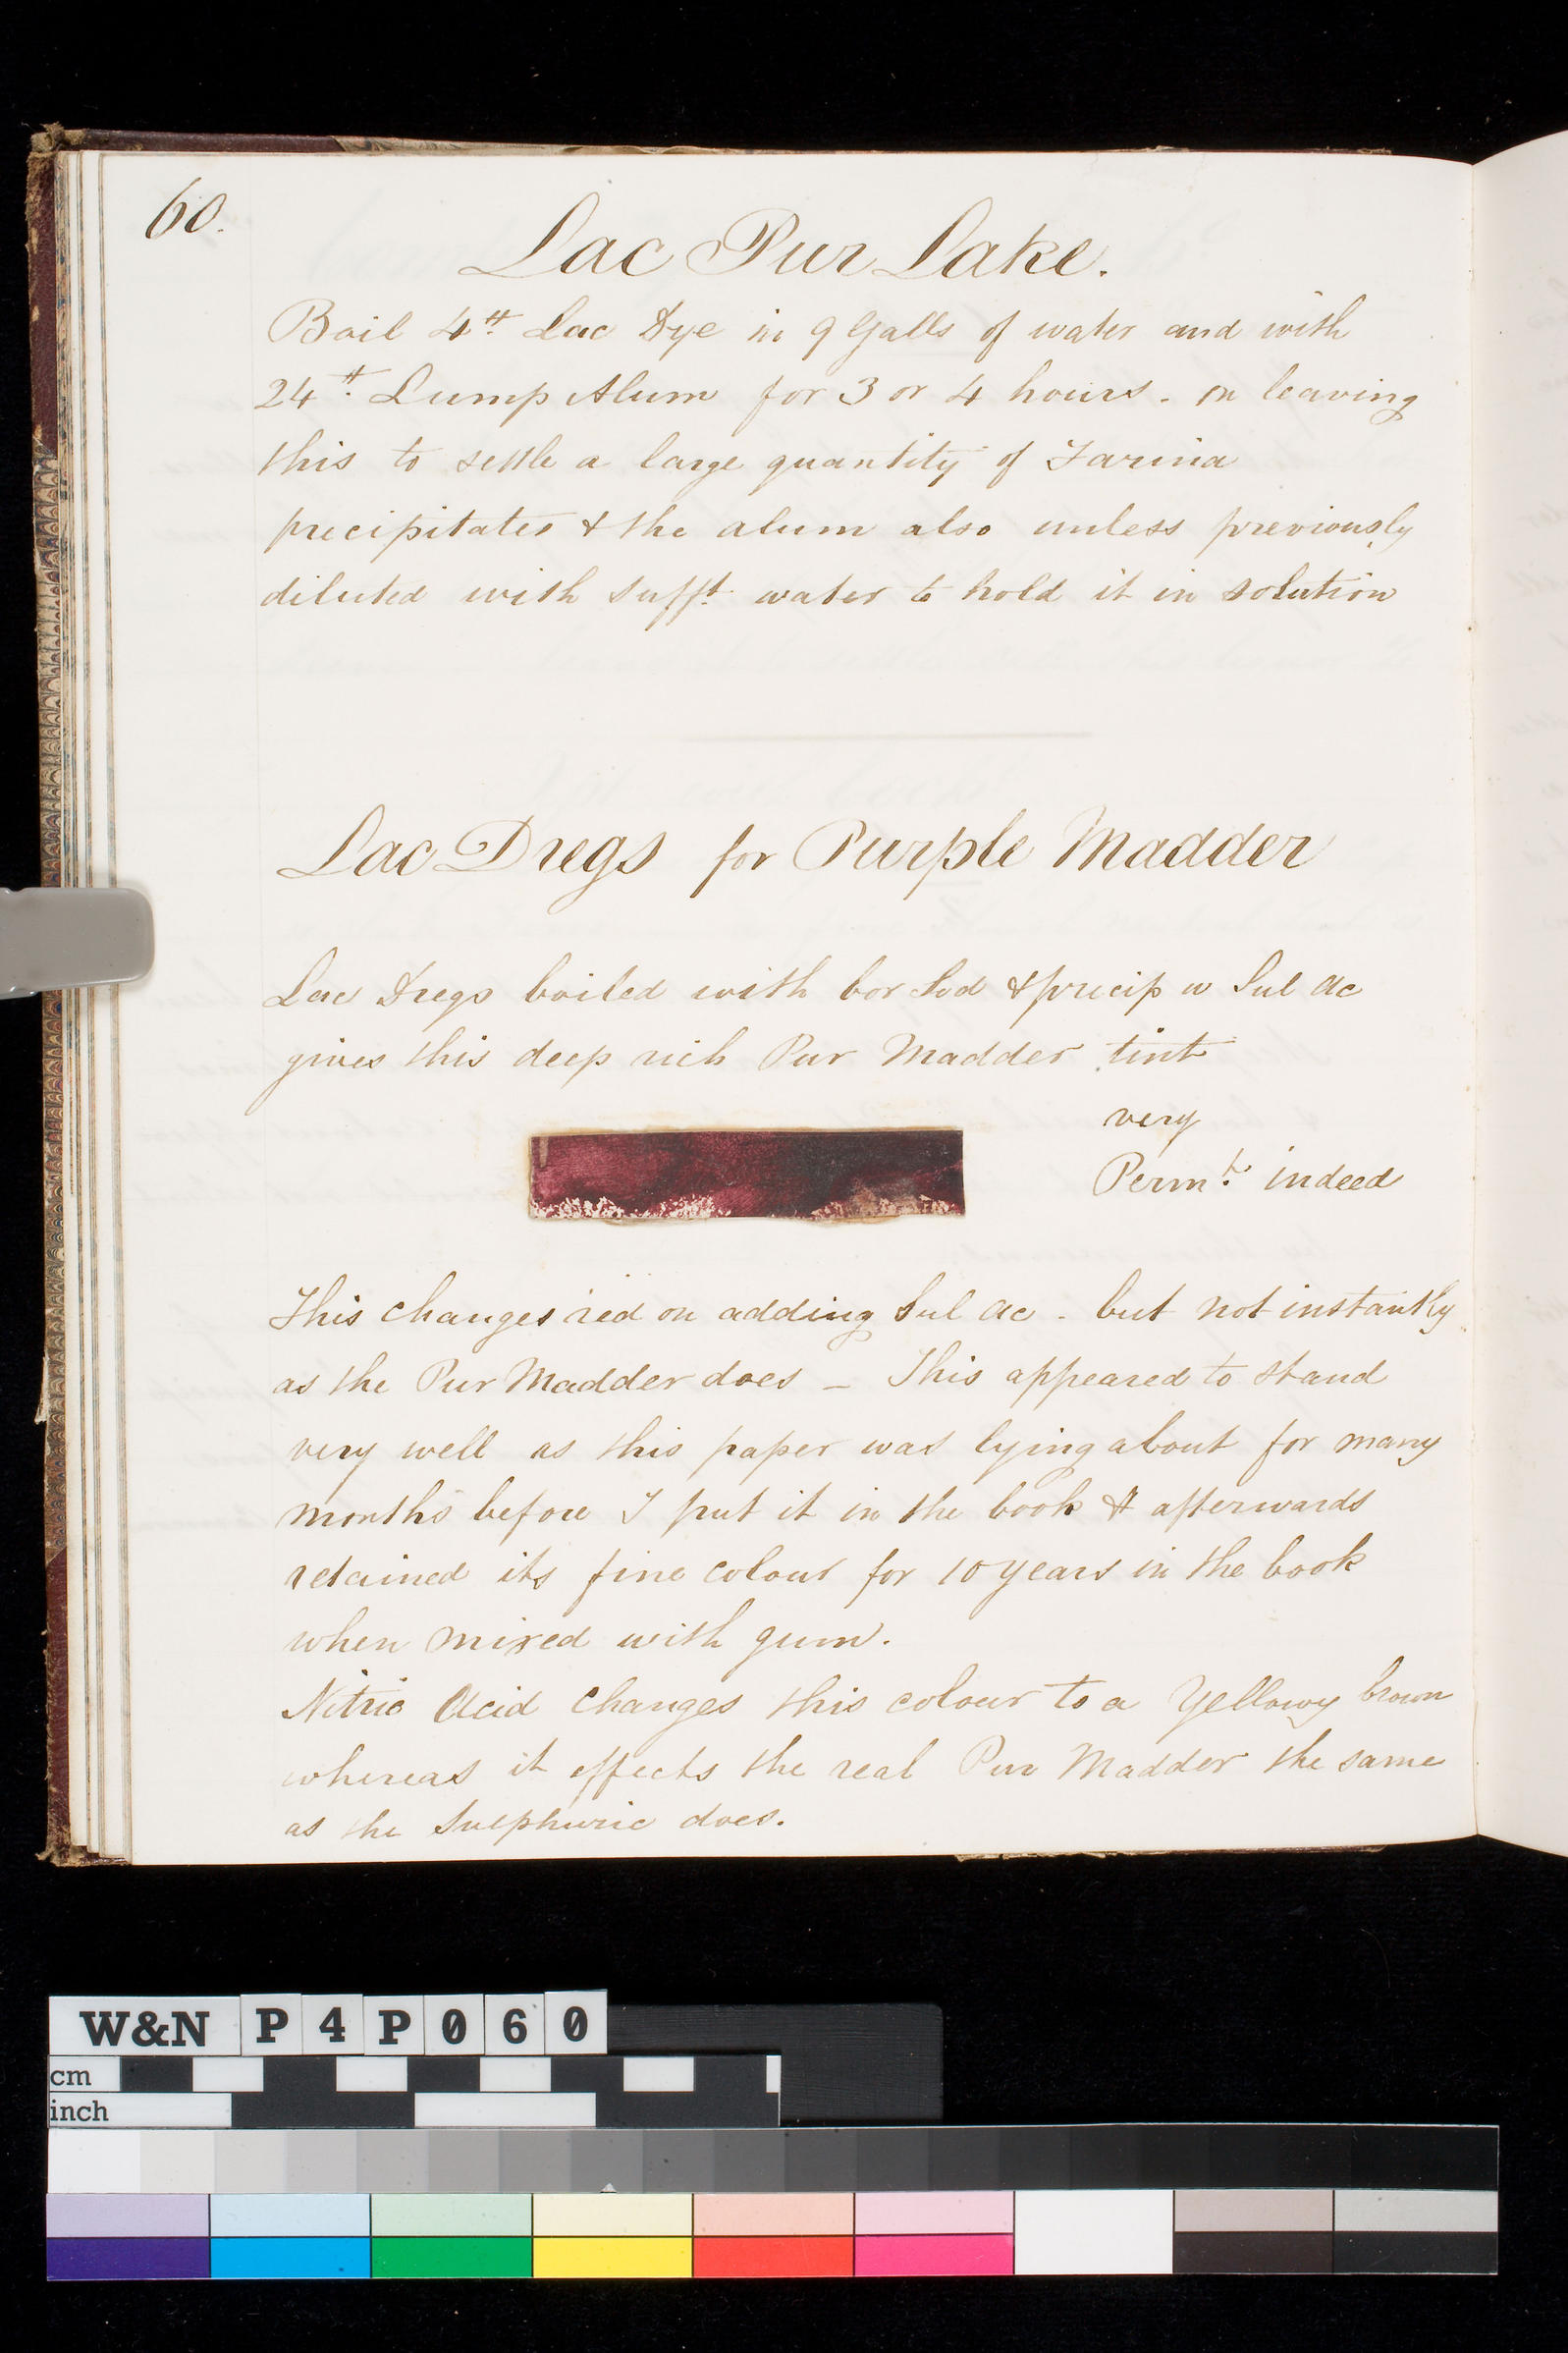 60.
Lac Pur Lake.
Boil 4 ℔ Lac Dye in 9 Galls of water and with
24 ℔ Lump Alum for 3 or 4 hours. on leaving
this to settle a large quantity of Farina
precipitates & the alum also unless previously
diluted with sufft. water to hold it in solution
Lac Dregs for Purple Madder
Lac Dregs boiled with bor Sod & precip w Sul Ac
gives this deep rich Pur Madder tint
very
Permt. indeed
This changes red on adding Sul Ac - but not instantly
as the Pur Madder does - This appeared to stand
very well as this paper was lying about for many
months before I put it in the book & afterwards
retained its fine colour for 10 years in the book
when mixed with gum.
Nitric Acid changes this colour to a Yellowy brown
whereas it effects the real Pur Madder the same
as the Sulphuric does.
W&N P4P060
cm
inch